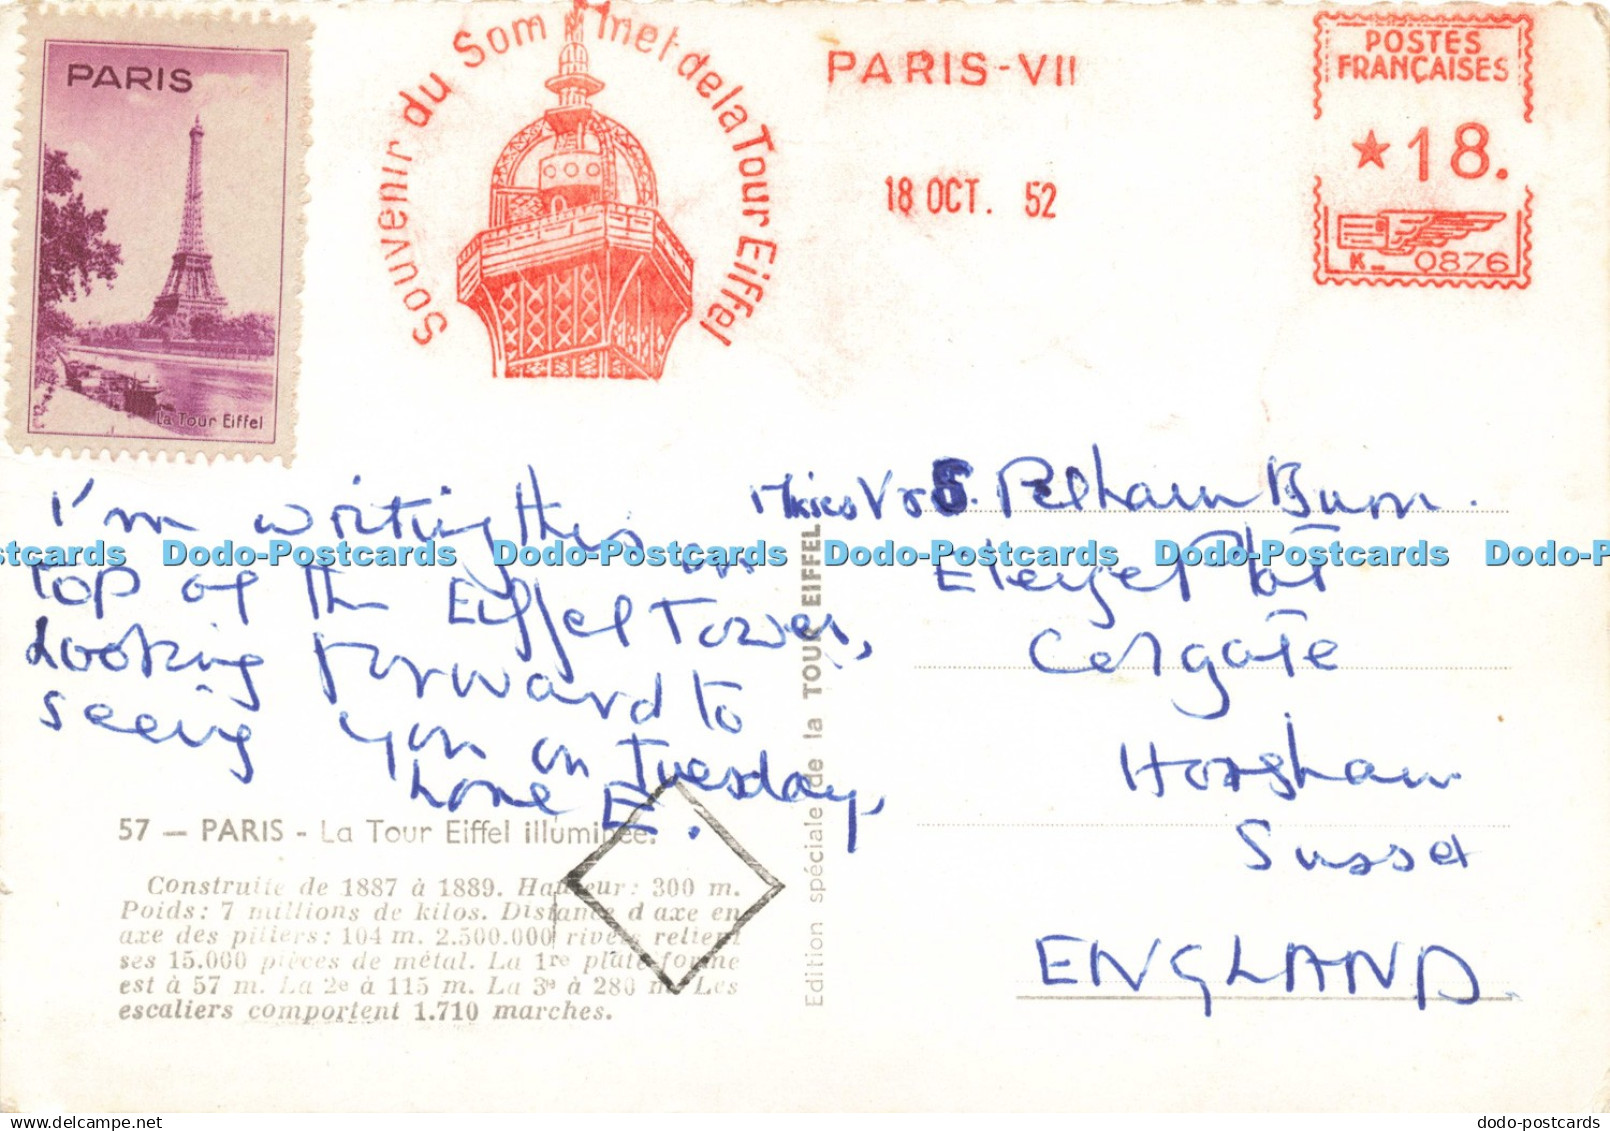 PARIS
La Tour Eiffel
Souvenir du Sommet de la Tour Eiffel
PARIS-VII
18 OCT. 52
POSTES
FRANÇAISES
★18.
K 0876
I'm writing this on
top of the Eiffel Tower,
Looking forward to
seeing you on Tuesday,
love E.
57 — PARIS - La Tour Eiffel illuminée.
Construite de 1887 à 1889. Hauteur: 300 m.
Poids: 7 millions de kilos. Distance d'axe en
axe des piliers: 104 m. 2.500.000 rivets relient
ses 15.000 pièces de métal. La 1re plate-forme
est à 57 m. La 2e à 115 m. La 3e à 280 m. Les
escaliers comportent 1.710 marches.
Edition spéciale de la TOUR EIFFEL
S. Pelham Burn.
Colgate
Horsham
Sussex
ENGLAND.
Dodo-Postcards Dodo-Postcards Dodo-Postcards Dodo-Postcards Dodo-Postcards
dodo-postcards